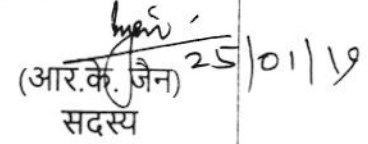 25/01/19
(आर.के. जैन)
सदस्य